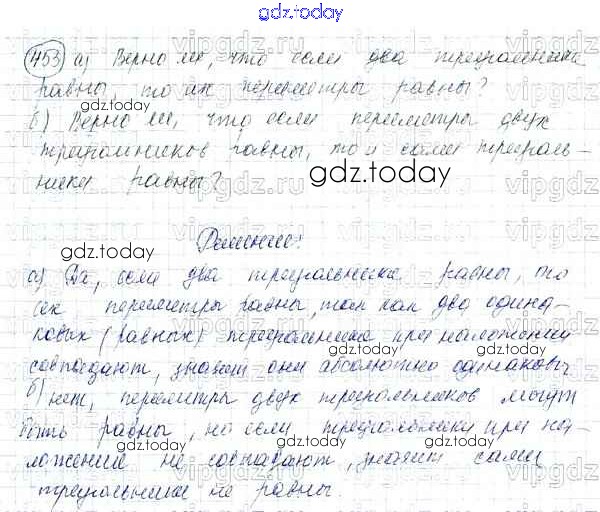 gdz.today
453 а) Верно ли, что если два треугольника
равны, то их периметры равны?
gdz.today
б) Верно ли, что если периметры двух
треугольников равны, то и сами треуголь-
ники равны?
gdz.today
gdz.today
Решение:
а) Да, если два треугольника равны, то
их периметры равны, так как два одина-
ковых (равных) треугольника при наложении
совпадают, значит они абсолютно одинаковы
б) нет, периметры двух треугольников могут
быть равны, но если треугольники при на-
ложении не совпадают, значит сами
треугольники не равны.
gdz.today
gdz.today
gdz.today